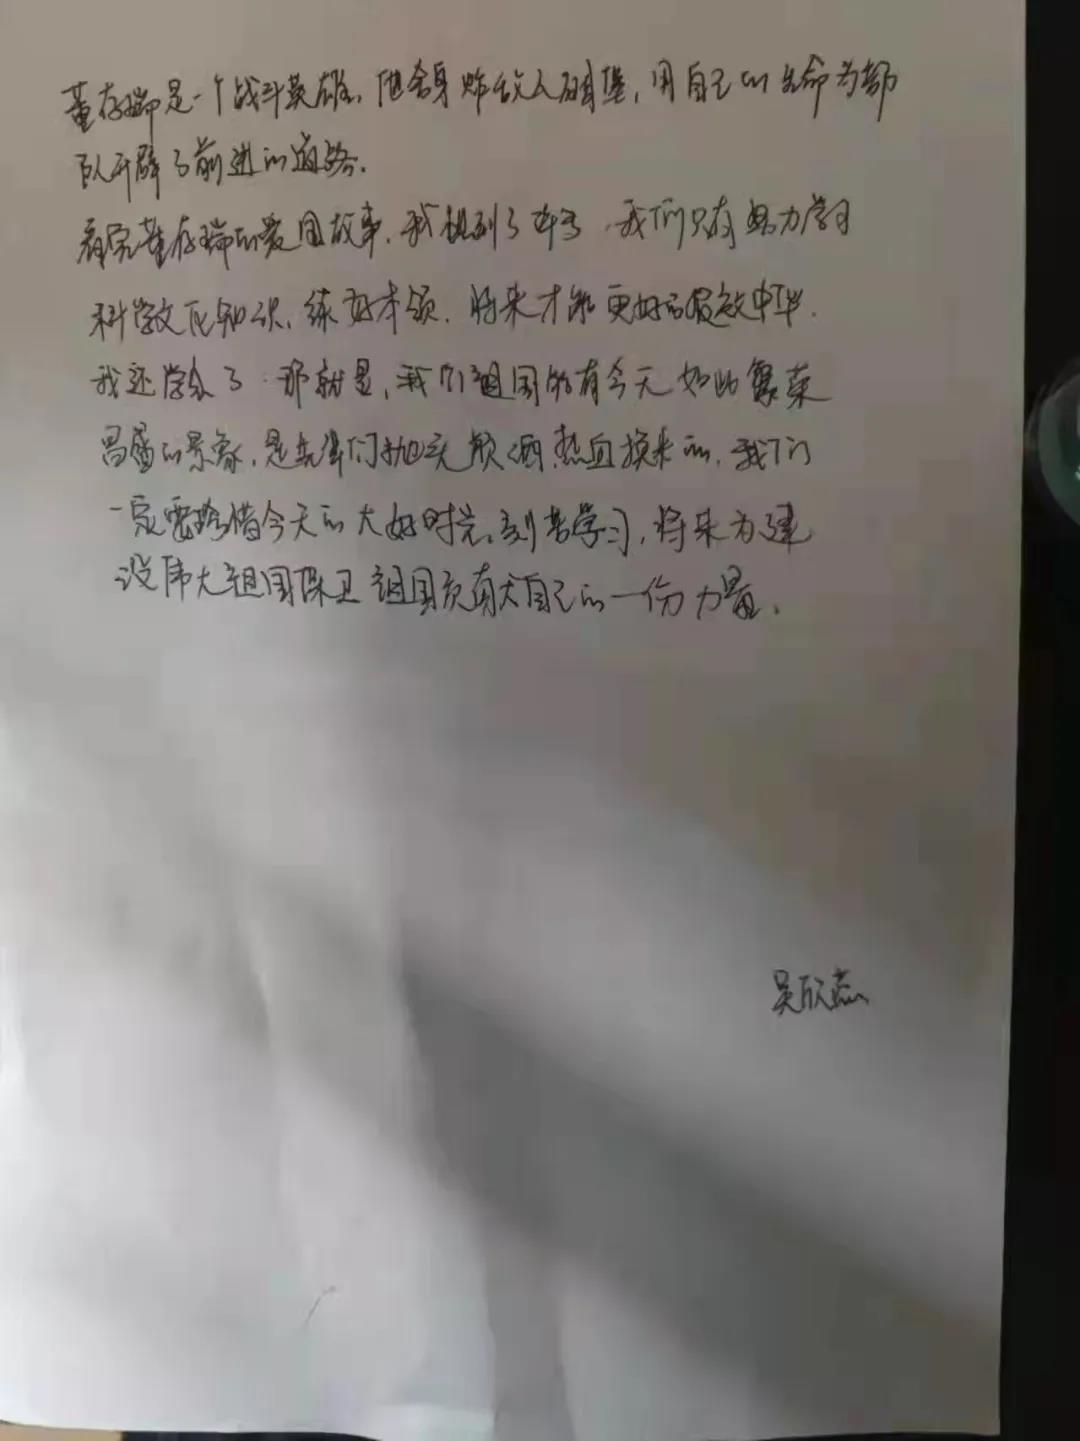 董存瑞是一个战斗英雄，他舍身炸敌人碉堡，用自己的生命为部
队开辟了前进的道路。
看完董存瑞的爱国故事，我想到了，我们只有努力学习
科学文化知识，练好本领，将来才能更好的报效中华。
我还学会了，那就是，我们祖国的有今天如此繁荣
昌盛的景象，是先辈们抛头颅洒热血换来的，我们
一定要珍惜今天的大好时光，刻苦学习，将来为建
设伟大祖国保卫祖国贡献自己的一份力量。
吴欣